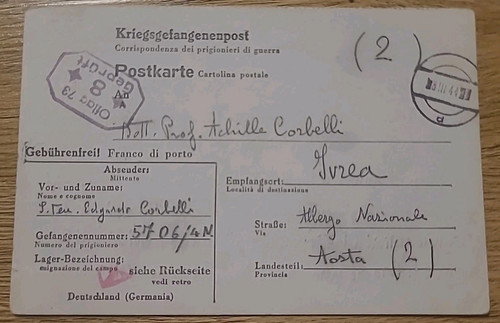 Kriegsgefangenenpost
Corrispondenza dei prigionieri di guerra
(2)
Postkarte Cartolina postale
Oflag 73
8
Geprüft
An
A
Dott. Prof. Achille Corbelli
Gebührenfrei! Franco di porto
Absender:
Mittente
Vor- und Zuname:
Nome e cognome
S. Ten. Edgardo Corbelli
Gefangenennummer: 5706/4N
Numero del prigioniero
Lager-Bezeichnung:
signazione del campo
siehe Rückseite
vedi retro
Deutschland (Germania)
Ivrea
Empfangsort:
Località di destinazione
Straße: Albergo Nazionale
Via
Landesteil: Aosta (2)
Provincia
d